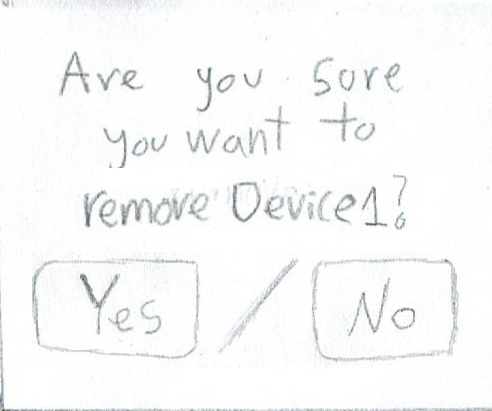 Are you sure
you want to
remove Device1?
Yes / No